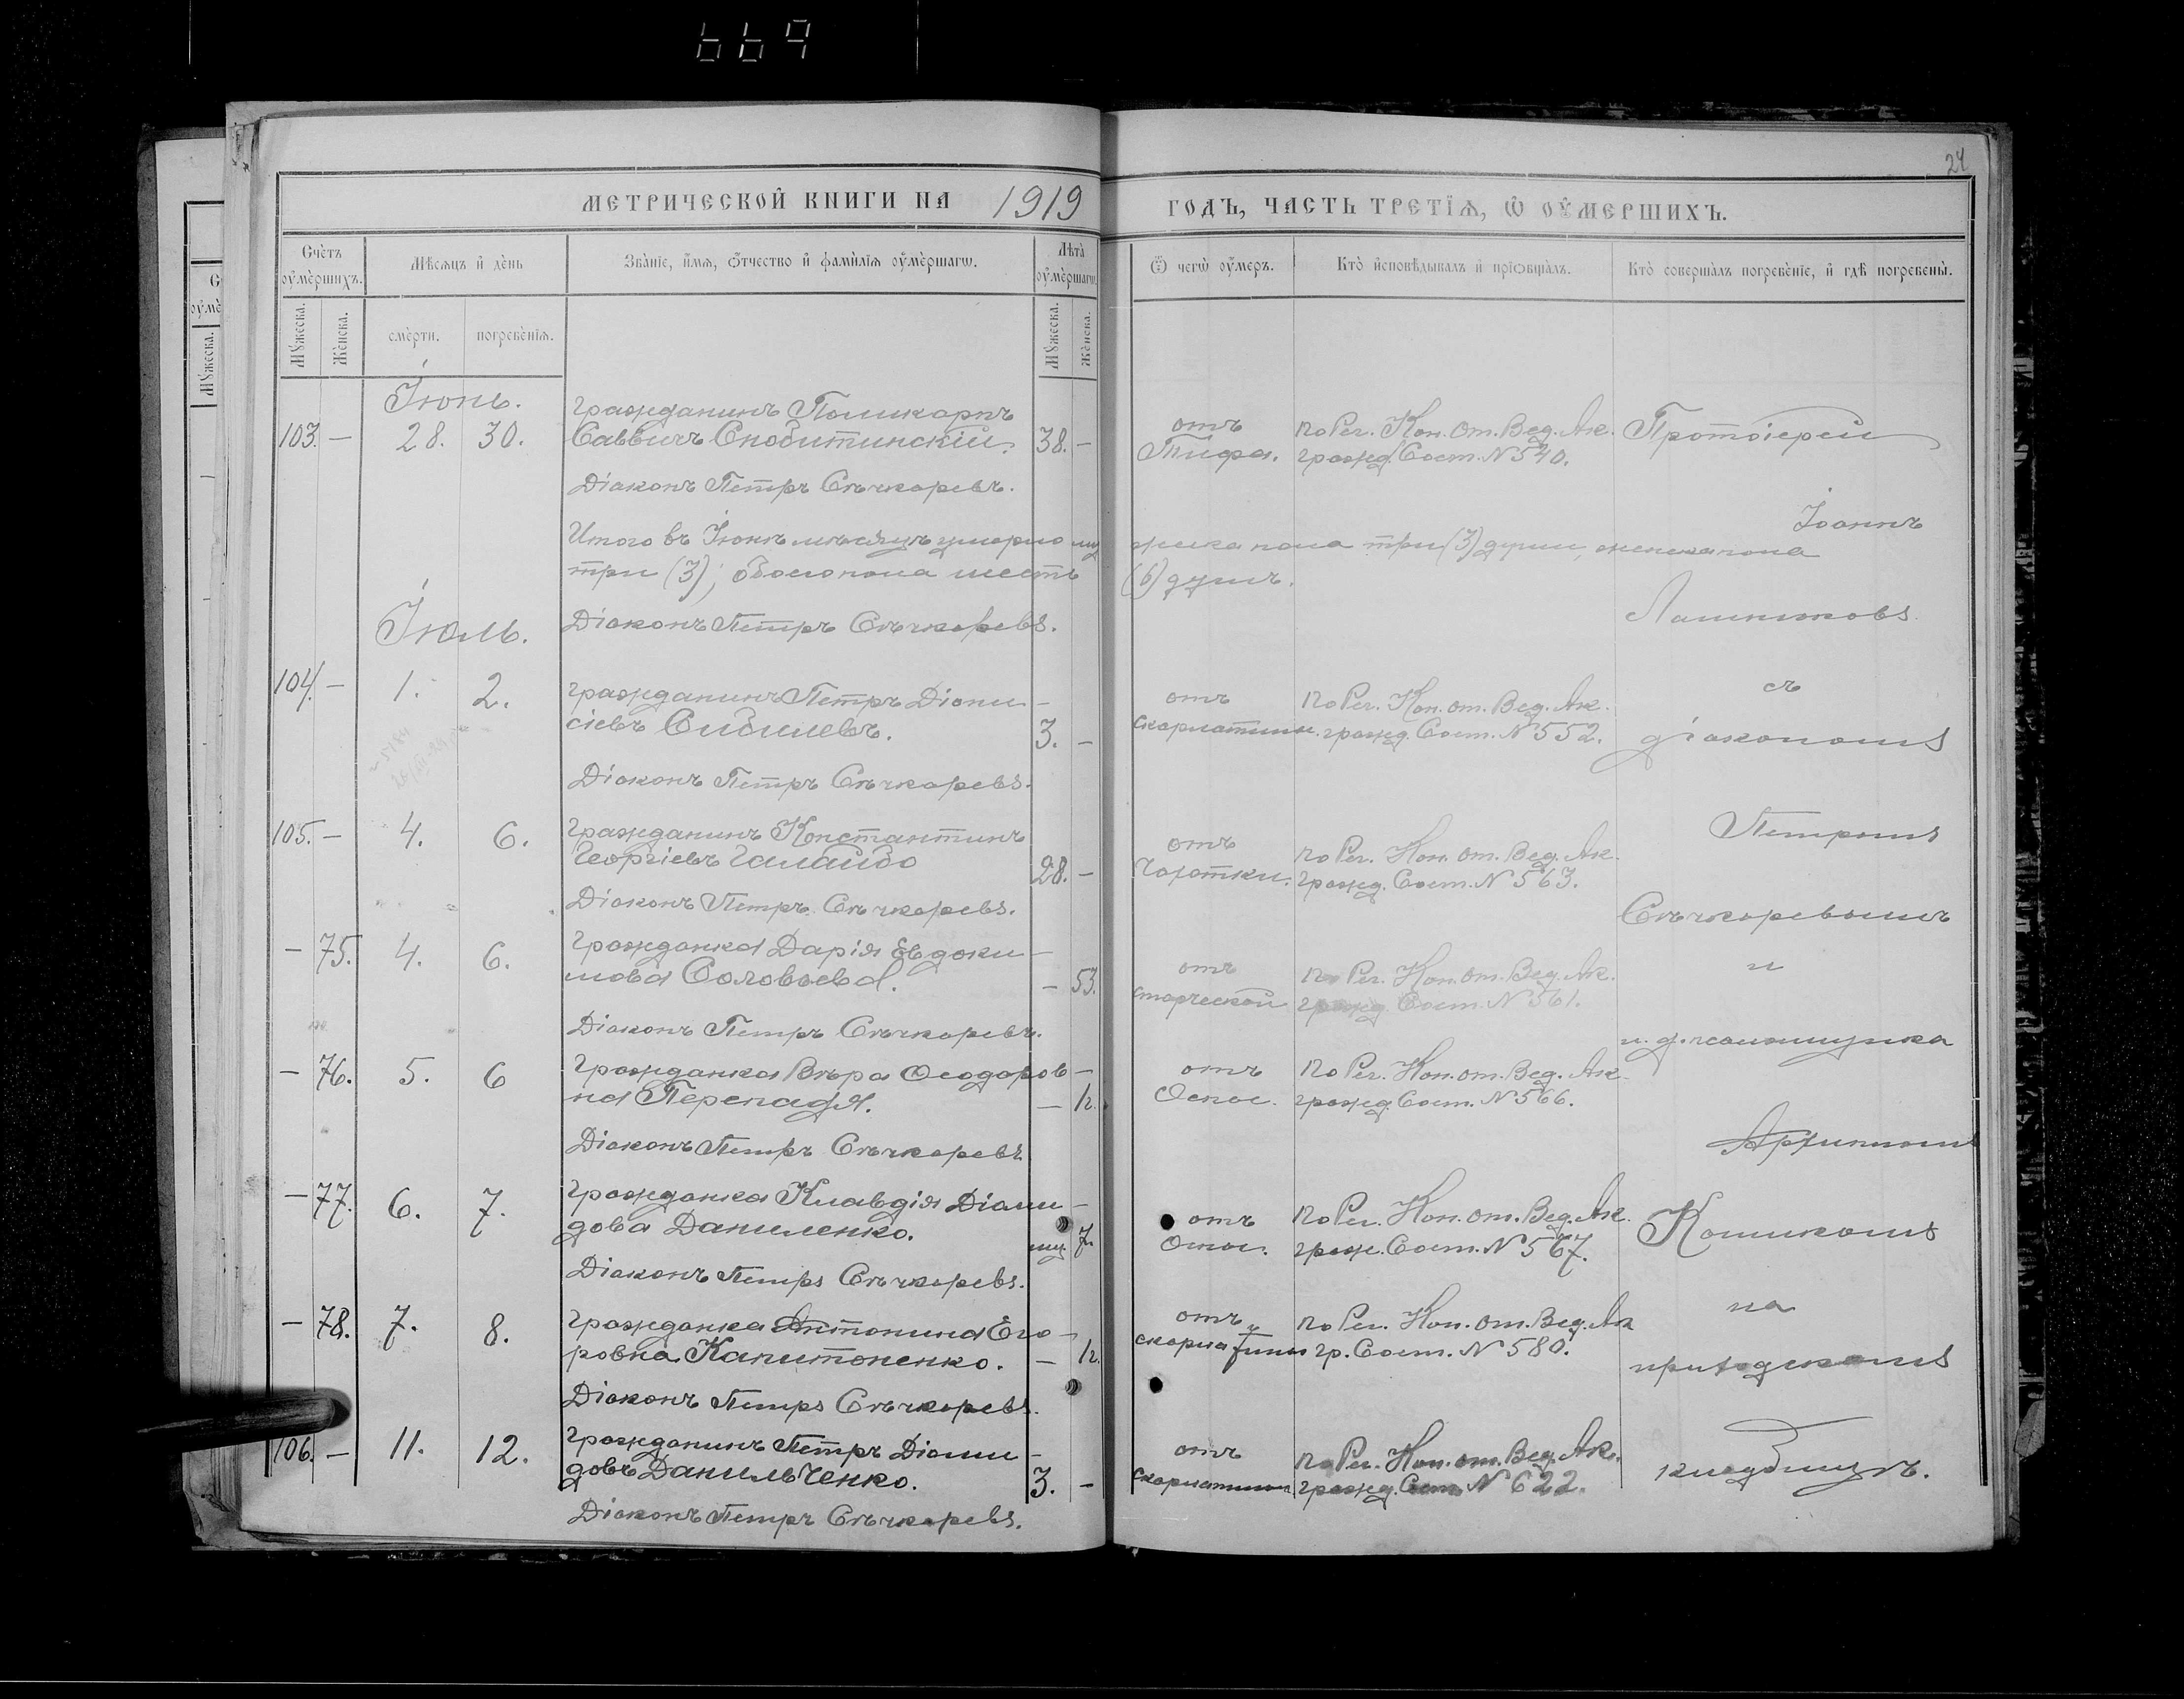 669
24
МЕТРИЧЕСКОЙ КНИГИ НА 1919 ГОДЪ, ЧАСТЬ ТРЕТІѦ, Ѡ ОУМЕРШИХЪ.
Счетъ оумершихъ.
Мѣсѧцъ и день
Званіе, имѧ, отчество и фамиліѧ оумершагѡ.
Лѣта оумершагѡ.
Ѿ чегѡ оумеръ.
Кто исповѣдывалъ и пріѡбщалъ.
Кто совершалъ погребеніе, и гдѣ погребены.
Мужеска.
Женска.
смерти.
погребеніѧ.
Мужеска.
Женска.
Іюнь.
гражданинъ Поликарпъ
103. — 28. 30. Саввичъ Снобитинскій. 38. —
отъ Тифа.
по Рег. Кон. От. Вед. Ак.
гражд. Сост. № 540.
Протоіерей
Діаконъ Петръ Сѣчкаревъ.
Іоаннъ
Итого въ Іюнѣ мѣсяцѣ умерло мужеска пола три (3) души, женска пола
три (3); обоего пола шесть (6) душъ.
Діаконъ Петръ Сѣчкаревъ.
Іюль.
104. — 1. 2. гражданинъ Петръ Діони-
сіевъ Сидилевъ. 3. —
отъ скарлатины.
по Рег. Кон. От. Вед. Ак.
гражд. Сост. № 552.
съ
діакономъ
Діаконъ Петръ Сѣчкаревъ.
105. — 4. 6. гражданинъ Константинъ
Георгіевъ Галайдо 28. —
отъ Чахотки.
по Рег. Кон. От. Вед. Ак.
гражд. Сост. № 563.
Петромъ
Діаконъ Петръ Сѣчкаревъ.
Сѣчкаревымъ
— 75. 4. 6. гражданка Дарія Евдоки-
мова Соловьева. — 53.
отъ старческой
по Рег. Кон. От. Вед. Ак.
гражд. Сост. № 561.
и
Діаконъ Петръ Сѣчкаревъ.
и. д. псаломщика
— 76. 5. 6 гражданка Вѣра Ѳеодоров-
на Перепадя. — 1г.
отъ Оспы.
по Рег. Кон. От. Вед. Ак.
гражд. Сост. № 566.
Діаконъ Петръ Сѣчкаревъ
Архипомъ
— 77. 6. 7. гражданка Клавдія Діоми-
дова Даниленко. 7.
отъ Оспы.
по Рег. Кон. От. Вед. Ак.
граж. Сост. № 567.
Діаконъ Петръ Сѣчкаревъ.
— 78. 7. 8. гражданка Антонина Его-
ровна Капитоненко. — 1г.
отъ скарлатины
по Рег. Кон. От. Вед. Ак
гр. Сост. № 580.
на
приходскомъ
Діаконъ Петръ Сѣчкаревъ.
106. — 11. 12. гражданинъ Петръ Діоми-
довъ Данильченко. 3. —
отъ скарлатины
по Рег. Кон. От. Вед. Ак.
гражд. Сост. № 622.
кладбищѣ.
Діаконъ Петръ Сѣчкаревъ.